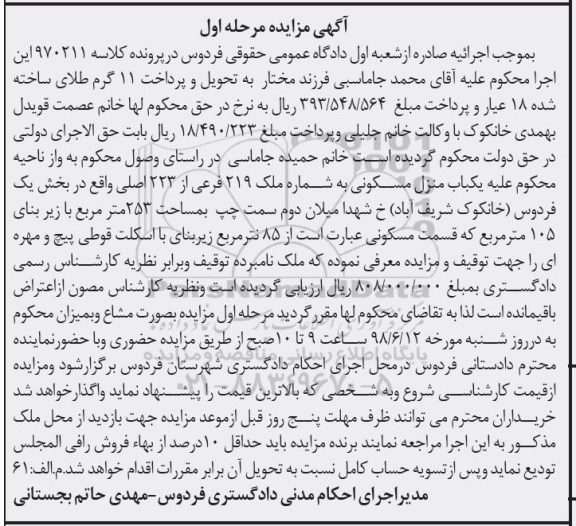 آگهی مزایده مرحله اول
بموجب اجرائیه صادره ازشعبه اول دادگاه عمومی حقوقی فردوس درپرونده کلاسه ۹۷۰۲۱۱ این
اجرا محکوم علیه آقای محمد جاماسبی فرزند مختار به تحویل و پرداخت ۱۱ گرم طلای ساخته
شده ۱۸ عیار و پرداخت مبلغ ۳۹۳/۵۴۸/۵۶۴ ریال به نرخ در حق محکوم لها خانم عصمت قویدل
بهمدی خانکوک با وکالت خانم جلیلی وپرداخت مبلغ ۱۸/۴۹۰/۲۲۳ ریال بابت حق الاجرای دولتی
در حق دولت محکوم گردیده است خانم حمیده جاماسی در راستای وصول محکوم به واز ناحیه
محکوم علیه یکباب منزل مسکونی به شماره ملک ۲۱۹ فرعی از ۲۲۳ اصلی واقع در بخش یک
فردوس (خانکوک شریف آباد) خ شهدا میلان دوم سمت چپ بمساحت ۲۵۳متر مربع با زیر بنای
۱۰۵ مترمربع که قسمت مسکونی عبارت است از ۸۵ نترمربع زیربنای با اسکلت قوطی پیچ و مهره
ای را جهت توقیف و مزایده معرفی نموده که ملک نامبرده توقیف وبرابر نظریه کارشناس رسمی
دادگستری بمبلغ ۸۰۸/۰۰۰/۰۰۰ ریال ارزیابی گردیده است ونظریه کارشناس مصون ازاعتراض
باقیمانده است لذا به تقاضای محکوم لها مقررگردید مرحله اول مزایده بصورت مشاع وبمیزان محکوم
به درروز شنبه مورخه ۹۸/۶/۱۲ ساعت ۹ تا ۱۰صبح از طریق مزایده حضوری وبا حضورنماینده
محترم دادستانی فردوس درمحل اجرای احکام دادگستری شهرستان فردوس برگزارشود ومزایده
ازقیمت کارشناسی شروع وبه شخصی که بالاترین قیمت را پیشنهاد نماید واگذارخواهد شد
خریداران محترم می توانند ظرف مهلت پنج روز قبل ازموعد مزایده جهت بازدید از محل ملک
مذکور به این اجرا مراجعه نمایند برنده مزایده باید حداقل ۱۰درصد از بهاء فروش رافی المجلس
تودیع نماید وپس ازتسویه حساب کامل نسبت به تحویل آن برابر مقررات اقدام خواهد شد.م.الف:۶۱
مدیراجرای احکام مدنی دادگستری فردوس-مهدی حاتم بجستانی